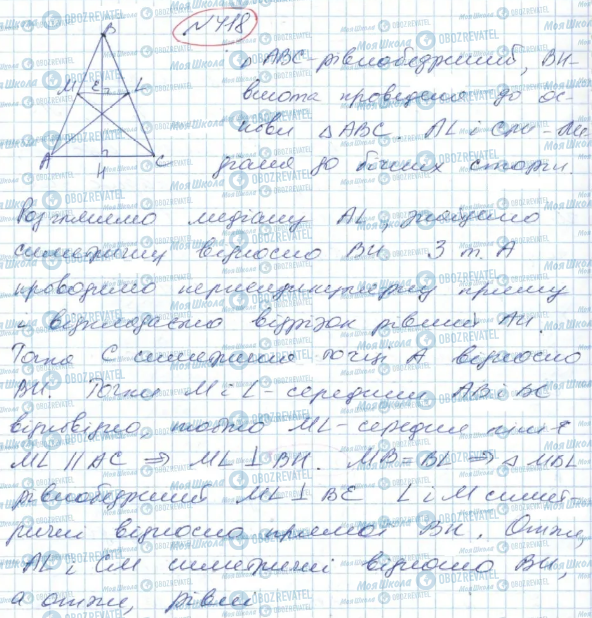 № 418
B
M E L
A C
H
△ ABC - рівнобедрений, BH -
висота проведена до ос-
нови △ ABC. AL і CM - ме-
діани до бічних сторін.
Розглянемо медіану AL, знайдемо
симетричну відносно BH З т. A
проводимо перпендикулярну пряму
і відкладаємо відрізок рівний AH.
Точка C симетрична точці A відносно
BH. Точки M і L - середини AB і BC
відповідно, тобто ML - середня лінія
ML || AC ⇒ ML ⊥ BH. MB = BL ⇒ △ MBL
рівнобедрений ML ⊥ BE L і M симет-
ричні відносно прямої BH. Отже,
AL і CM симетричні відносно BH,
а отже, рівні